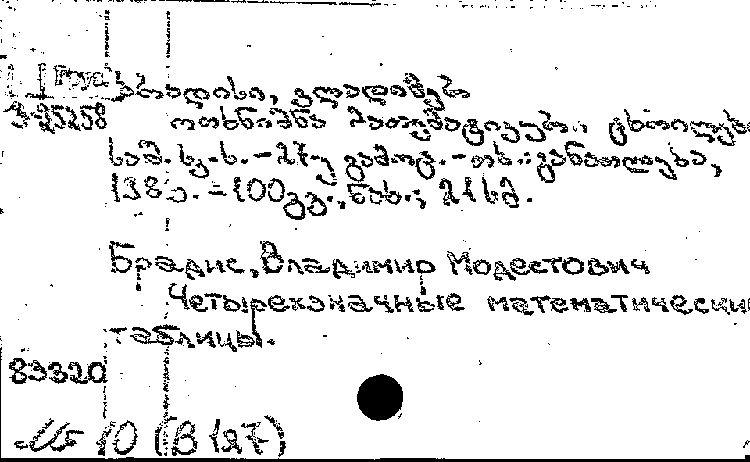 ბრადისი, ვლადიმერ
3-25258 ოთხნიშნა მათემატიკურ. ცხრილები
საშ. სკ. ს. - 27-ე გამოც. - თბ.: განათლება,
198 გ. - 100 გვ., ნახ.; 21 სმ.
Брадис, Владимир Модестович
Четырехзначные математические
таблицы.
83320
10 (В 127)